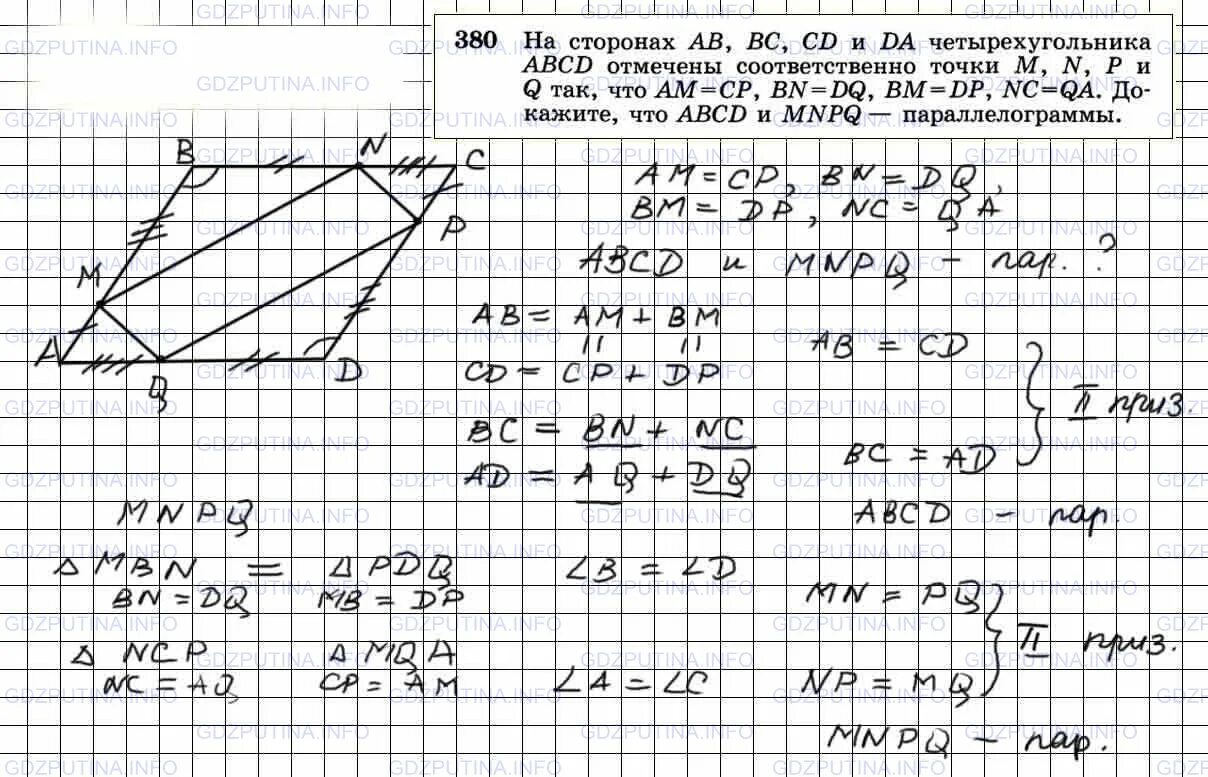 380 На сторонах AB, BC, CD и DA четырехугольника
ABCD отмечены соответственно точки M, N, P и
Q так, что AM=CP, BN=DQ, BM=DP, NC=QA. До-
кажите, что ABCD и MNPQ — параллелограммы.
B N C
P
M
A Q D
AM = CP, BN = DQ,
BM = DP, NC = QA
ABCD и MNPQ - пар. ?
AB = AM + BM
|| ||
CD = CP + DP
AB = CD
BC = BN + NC
AD = AQ + DQ
BC = AD
II приз.
ABCD - пар.
MNPQ
Δ MBN = Δ PDQ ∠B = ∠D
BN = DQ MB = DP
MN = PQ
Δ NCP Δ MQA
NC = AQ CP = AM ∠A = ∠C
NP = MQ
II приз.
MNPQ - пар.
GDZPUTINA.INFO